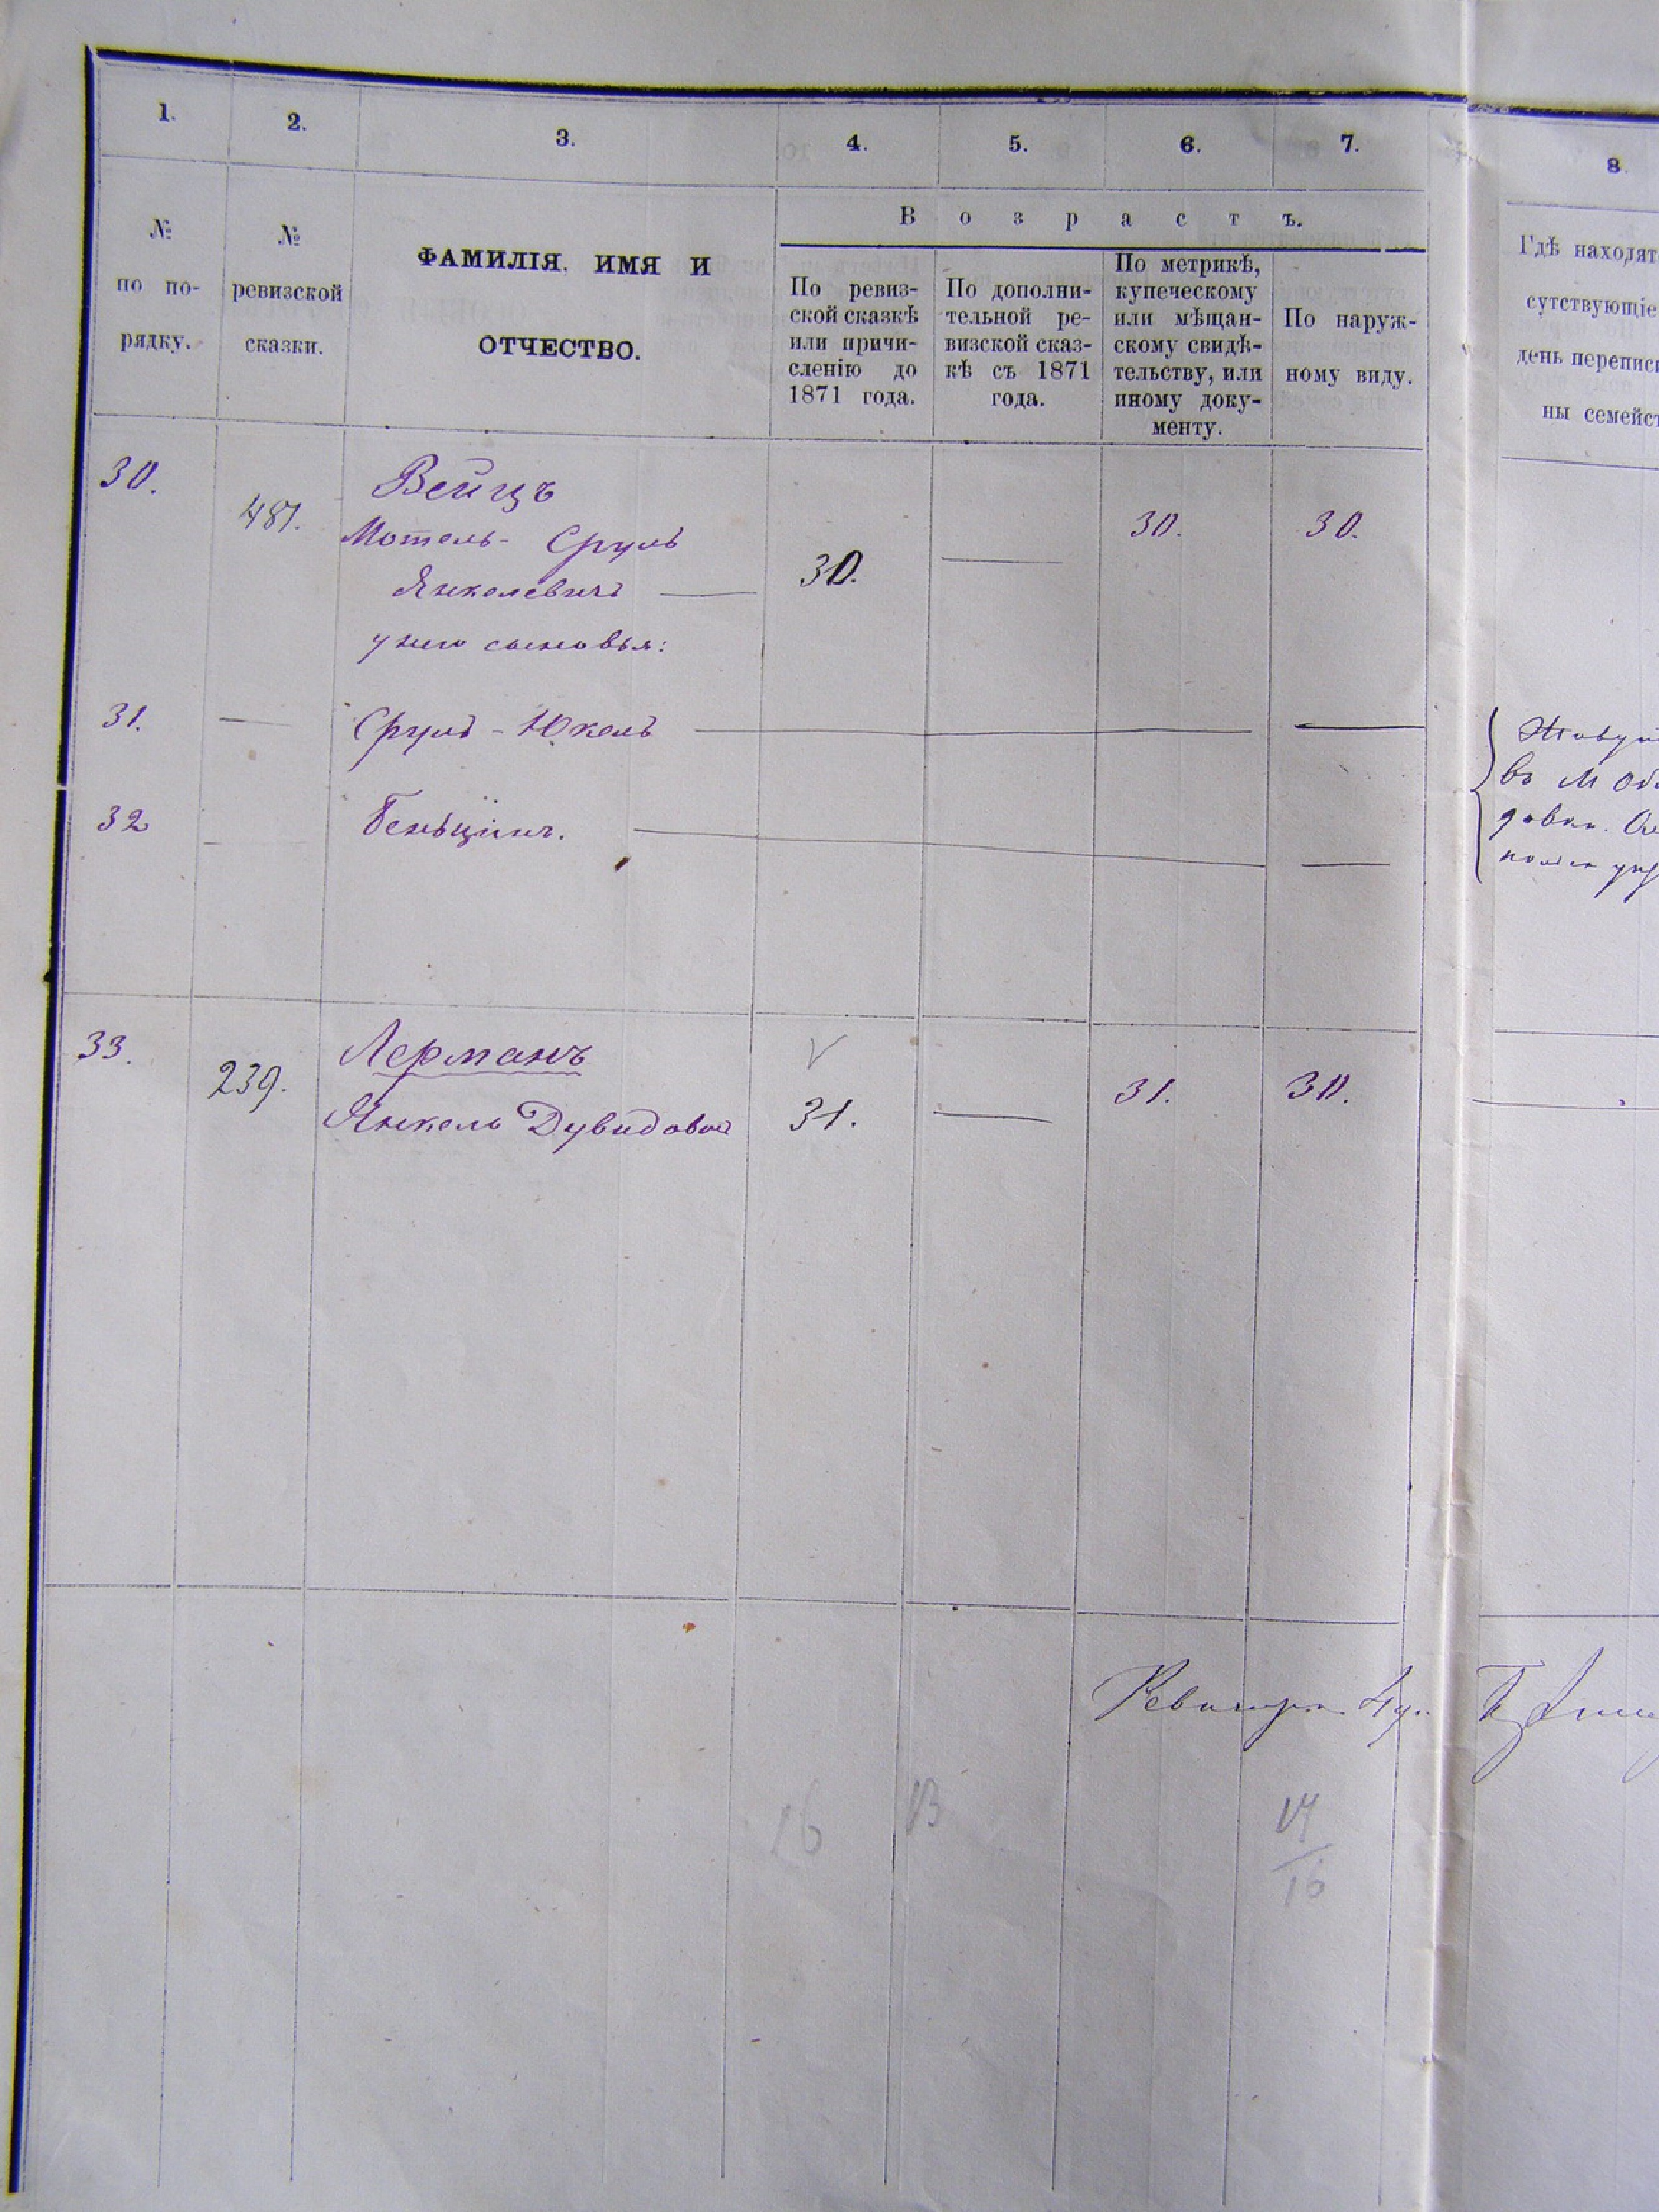 1. 2. 3. 4. 5. 6. 7. 8.
№
по по-
рядку.
№
ревизской
сказки.
ФАМИЛІЯ, ИМЯ И
ОТЧЕСТВО.
Возрастъ.
По ревиз-
ской сказкѣ
или причи-
сленію до
1871 года.
По дополни-
тельной ре-
визской сказ-
кѣ съ 1871
года.
По метрикѣ,
купеческому
или мѣщан-
скому свидѣ-
тельству, или
иному доку-
менту.
По наруж-
ному виду.
Гдѣ находят
сутствующіе
день переписи
ны семейст
30. 481. Вейцъ
Мотель- Сруль
Янкелевичъ — 30. — 30. 30.
у него сыновья:
31. — Срулъ - Юкель — —
32 — Беньціинъ. — —
въ М
33. 239. Лерманъ
Янкель Дувидовъ 31. — 31. 30. —
16 13 14
16